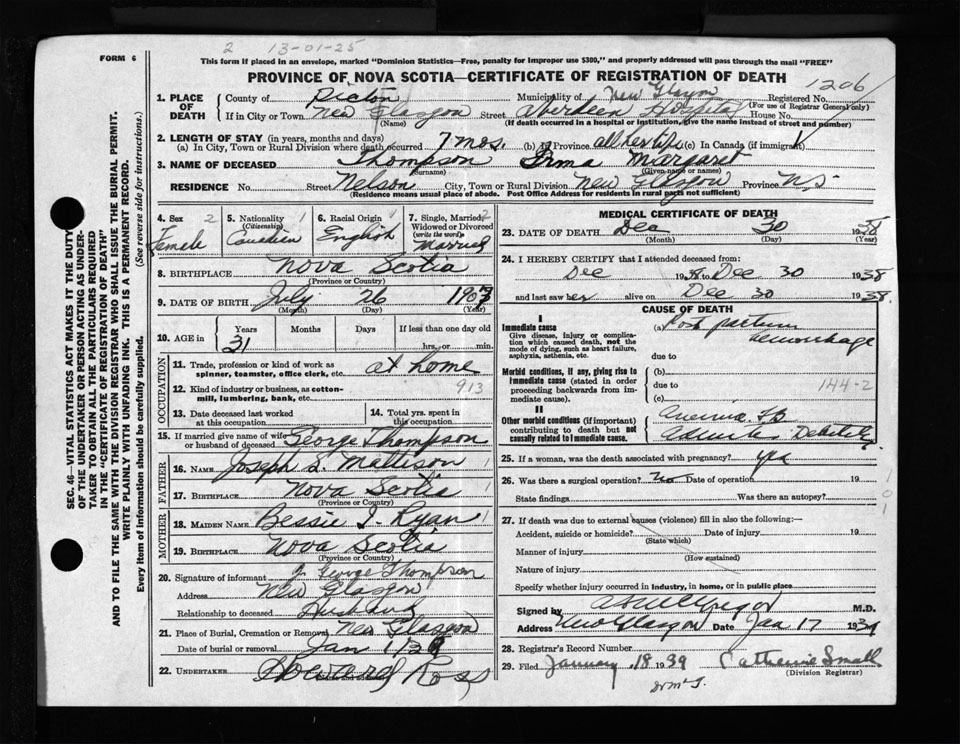 2 13-01-25
FORM 6
This form if placed in an envelope, marked "Dominion Statistics—Free, penalty for improper use $300," and properly addressed will pass through the mail "FREE"
PROVINCE OF NOVA SCOTIA—CERTIFICATE OF REGISTRATION OF DEATH
1206
SEC. 46—VITAL STATISTICS ACT MAKES IT THE DUTY OF THE UNDERTAKER OR PERSON ACTING AS UNDERTAKER TO OBTAIN ALL THE PARTICULARS REQUIRED IN THE "CERTIFICATE OF REGISTRATION OF DEATH"
AND TO FILE THE SAME WITH THE DIVISION REGISTRAR WHO SHALL ISSUE THE BURIAL PERMIT.
WRITE PLAINLY WITH UNFADING INK. THIS IS A PERMANENT RECORD.
Every item of information should be carefully supplied. (See reverse side for instructions.)
1. PLACE OF DEATH County of Pictou Municipality of New Glasgow Registered No.
(For use of Registrar General only)
If in City or Town New Glasgow Street Aberdeen Hospital House No.
(Name) (If death occurred in a hospital or institution, give the name instead of street and number)
2. LENGTH OF STAY (in years, months and days)
(a) In City, Town or Rural Division where death occurred 7 mos. (b) In Province all her life (c) In Canada (if immigrant)
3. NAME OF DECEASED Thompson Irma Margaret
(Surname) (Given name or names)
RESIDENCE No. Street Nelson City, Town or Rural Division New Glasgow Province N.S.
(Residence means usual place of abode. Post Office Address for residents in rural parts not sufficient)
4. Sex 2 Female
5. Nationality 1 (Citizenship) Canadian
6. Racial Origin 1 English
7. Single, Married, 2 Widowed or Divorced (write the word) Married
8. BIRTHPLACE Nova Scotia
(Province or Country)
9. DATE OF BIRTH July 26 1907
(Month) (Day) (Year)
10. AGE in Years 31 Months Days If less than one day old
hrs., or min.
OCCUPATION
11. Trade, profession or kind of work as spinner, teamster, office clerk, etc. at home
12. Kind of industry or business, as cotton-mill, lumbering, bank, etc. 913
13. Date deceased last worked at this occupation
14. Total yrs. spent in this occupation
15. If married give name of wife or husband of deceased George Thompson
FATHER
16. NAME Joseph S. Mattison 1
17. BIRTHPLACE Nova Scotia 1
(Province or Country)
MOTHER
18. MAIDEN NAME Bessie I. Ryan 1
19. BIRTHPLACE Nova Scotia
(Province or Country)
20. Signature of informant George Thompson
Address New Glasgow
Relationship to deceased Husband
21. Place of Burial, Cremation or Removal New Glasgow
Date of burial or removal Jan 1 1939
22. UNDERTAKER Howard Ross
MEDICAL CERTIFICATE OF DEATH
23. DATE OF DEATH Dec 30 1938
(Month) (Day) (Year)
24. I HEREBY CERTIFY that I attended deceased from:
Dec 1938 to Dec 30 1938
and last saw her alive on Dec 30 1938.
CAUSE OF DEATH
I
Immediate cause
Give disease, injury or complication which caused death, not the mode of dying, such as heart failure, asphyxia, asthenia, etc.
(a) Post partum hemorrhage
due to
Morbid conditions, if any, giving rise to immediate cause (stated in order proceeding backwards from immediate cause).
(b)
due to 144-2
(c)
II
Other morbid conditions (if important) contributing to death but not causally related to immediate cause.
Anemia Debility
25. If a woman, was the death associated with pregnancy? yes
26. Was there a surgical operation? no Date of operation 19 1
State findings Was there an autopsy? 0
1
27. If death was due to external causes (violence) fill in also the following:—
Accident, suicide or homicide? Date of injury 19
(State which)
Manner of injury
(How sustained)
Nature of injury
Specify whether injury occurred in industry, in home, or in public place
Signed by M.D.
Address New Glasgow Date Jan 17 1939
28. Registrar's Record Number
29. Filed January 18 1939 Catherine Small
(Division Registrar)